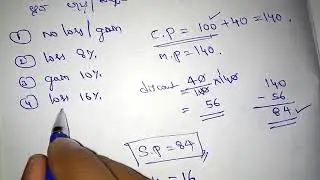 ① no loss/gain
② loss 8%
③ gain 10%
④ loss 16%
C.P = 100 + 40 = 140.
M.P = 140.
discount 40/100 x 140
56
140
- 56
84 ✓
S.P = 84
= 16